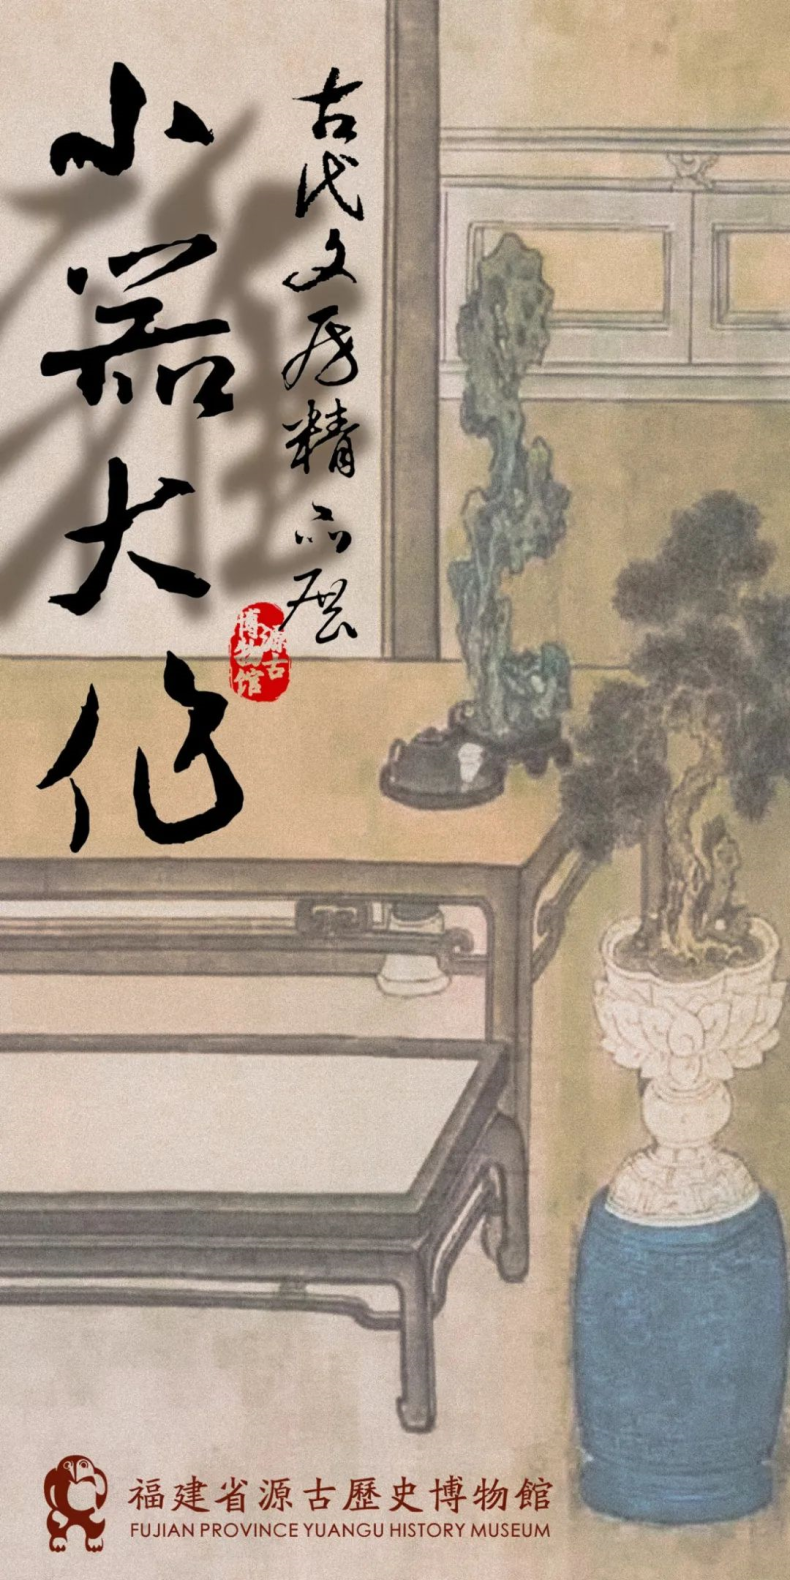 小器大作
古代文房精品展
雅
源古
博物馆
福建省源古歷史博物館
FUJIAN PROVINCE YUANGU HISTORY MUSEUM